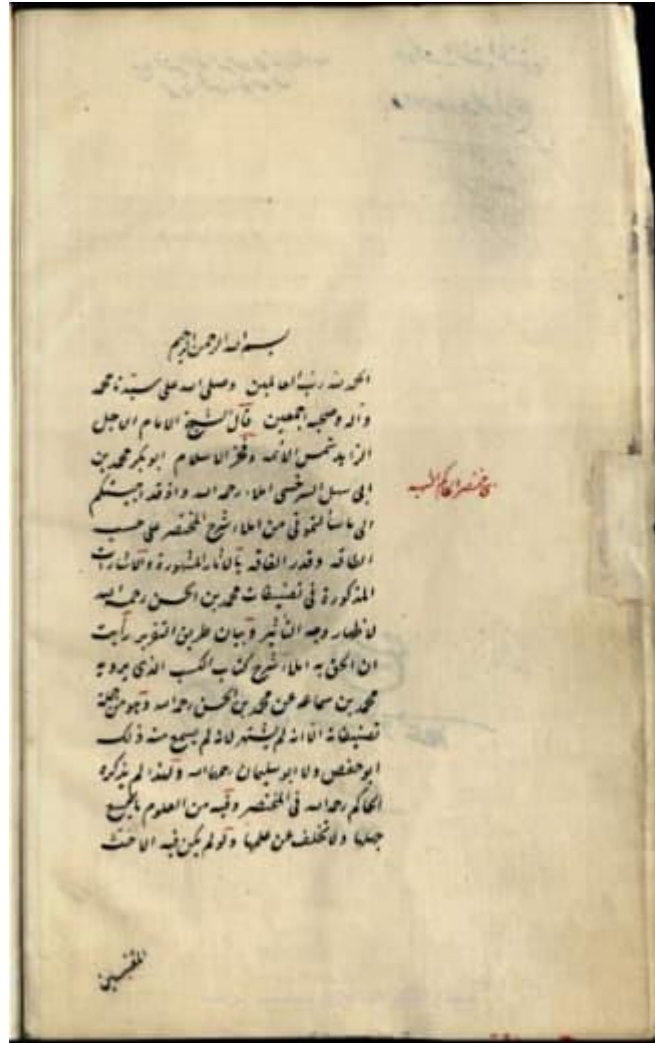 بسم الله الرحمن الرحيم
الحمد لله رب العالمين وصلى الله على سيدنا محمد
وآله وصحبه اجمعين قال الشيخ الامام الاجل
الزاهد شمس الائمه وفخر الاسلام ابو بكر محمد بن
ابى سهل السرخسى املاء رحمه الله واذ قد اجبتكم
الى ما سألتمونى من املاء شرح المختصر على حسب
الطاقه وقدر الفاقه بالآثار المشهورة والاشارات
المذكورة فى تصنيفات محمد بن الحسن رحمه الله
لاظهار وجه التأثير وبيان طريق التقرير رأيت
ان الحق به املاء شرح كتاب الكسب الذى يرويه
محمد بن سماعه عن محمد بن الحسن رحمه الله وهو من جملة
تصنيفاته الا انه لم يشتهر لانه لم يسمع منه ذلك
ابو حفص ولا ابو سليمان رحمهما الله ولهذا لم يذكره
الحاكم رحمه الله فى المختصر وفيه من العلوم ما لا يسع
جهلها ولا تخلف عن علمها ولو لم يكن فيه الا حث
المفلسين